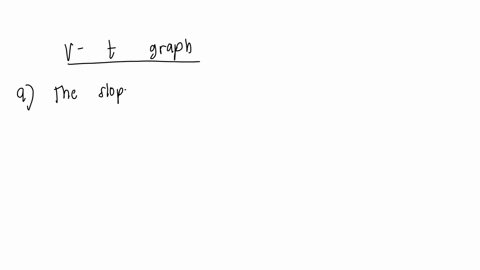 v - t graph
a) The slop